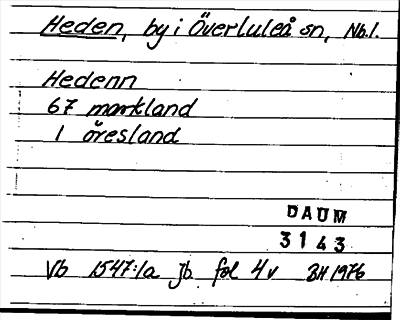 Heden, by i Överluleå sn, Nb.l.
Hedenn
67 markland
1 öresland
DAUM
3143
Vb 1547:1a jb fol 4v BH 1976